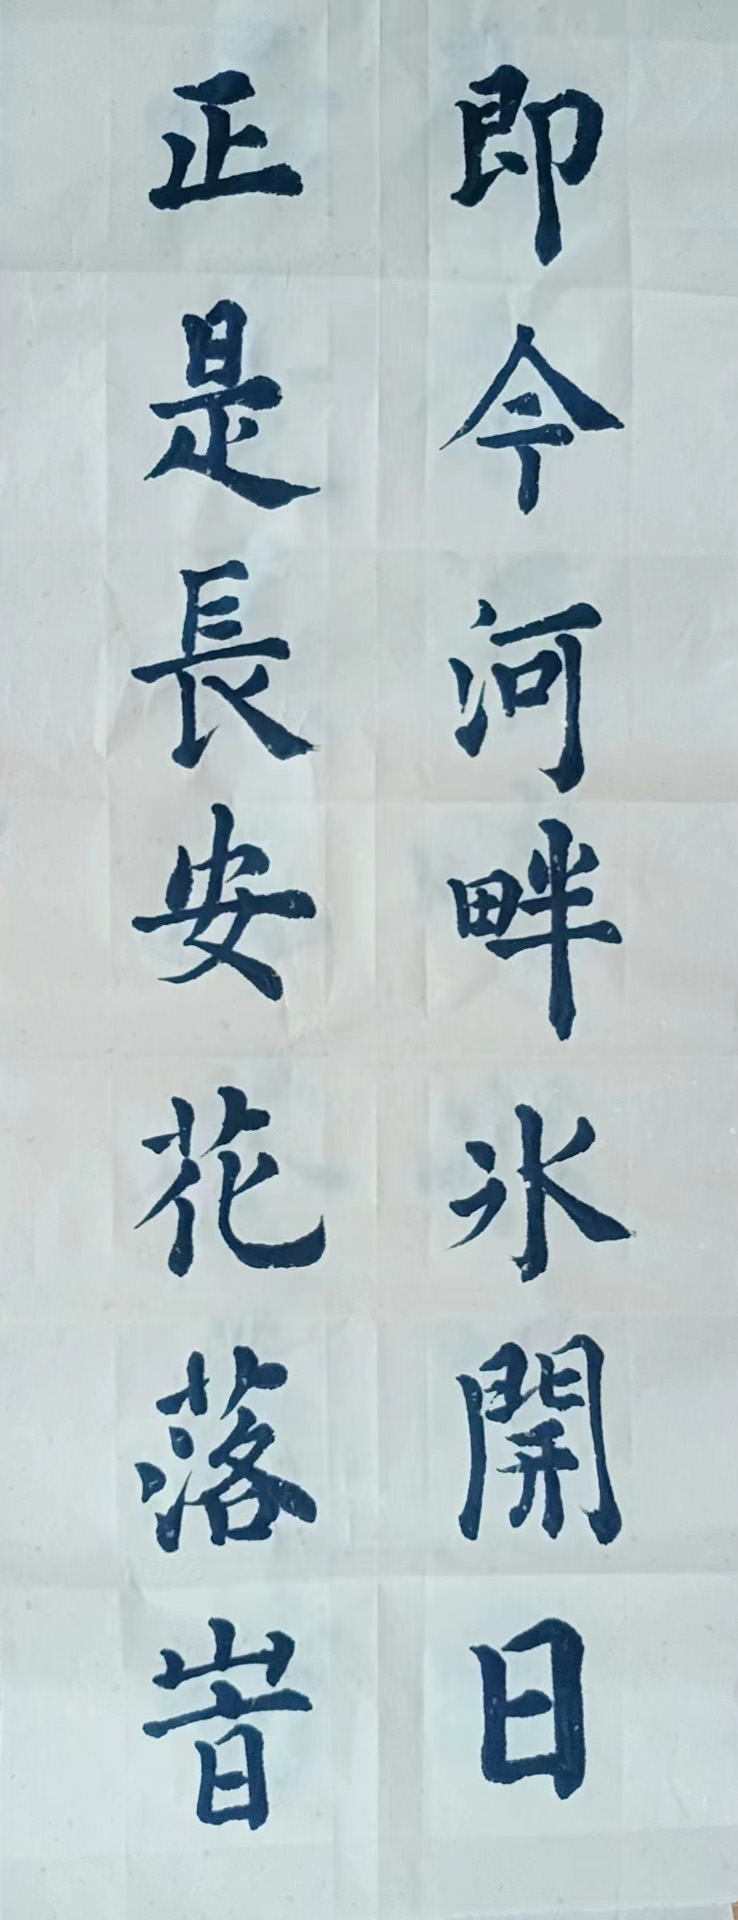 即今河畔氷開日
正是長安花落旹